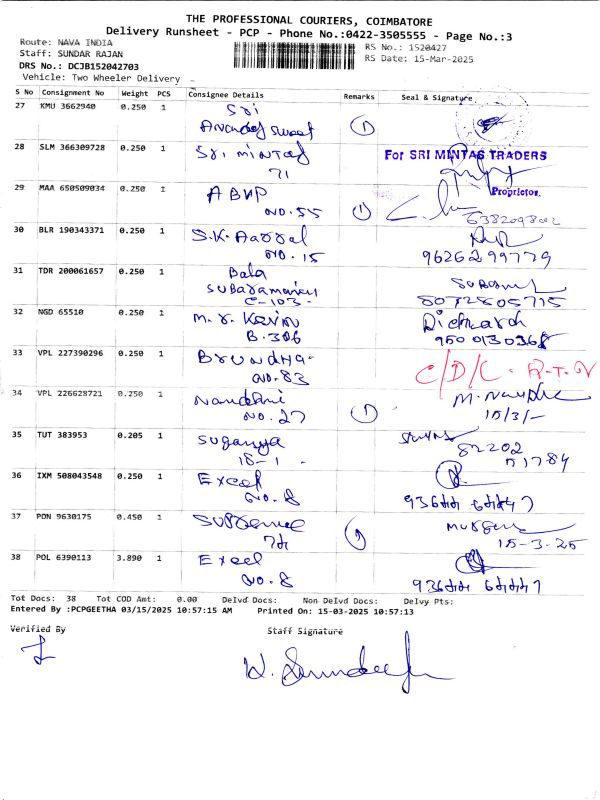 THE PROFESSIONAL COURIERS, COIMBATORE
Delivery Runsheet - PCP - Phone No.:0422-3505555 - Page No.:3
Route: NAVA INDIA
RS No.: 1520427
Staff: SUNDAR RAJAN
RS Date: 15-Mar-2025
DRS No.: DCJB152042703
Vehicle: Two Wheeler Delivery
S No Consignment No Weight PCS Consignee Details Remarks Seal & Signature
27 KMU 3662940 0.250 1 Sri
1
28 SLM 366309728 0.250 1 Sri mintas
71
For SRI MINTAS TRADERS
Proprietor.
29 MAA 650509034 0.250 1 ABVP
NO.55 1
30 BLR 190343371 0.250 1 S.K.
NO.15
9626299779
31 TDR 200061657 0.250 1 Bala
C-103
8072805715
32 NGD 65510 0.250 1 M.r. Kavin
B.306
33 VPL 227390296 0.250 1 Brundha
NO.83
C/D/C. R.T.N
34 VPL 226628721 0.250 1 Nandhini
NO.27 1
15/3/-
35 TUT 383953 0.205 1 suganya
18-1
36 IXM 508043548 0.250 1 Excel
NO.8
37 PON 9630175 0.450 1
15-3-25
38 POL 6390113 3.890 1 Excel
NO.8
Tot Docs: 38 Tot COD Amt: 0.00 Delvd Docs: Non Delvd Docs: Delvy Pts:
Entered By :PCPGEETHA 03/15/2025 10:57:15 AM Printed On: 15-03-2025 10:57:13
Verified By
Staff Signature